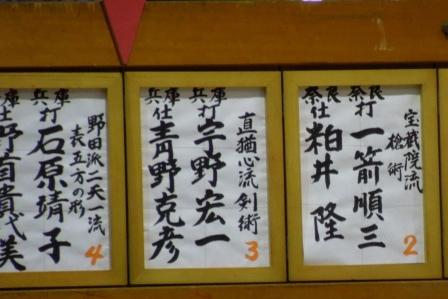 宝蔵院流
槍術
奈良
打 一箭順三
奈良
仕 粕井隆
2
直猶心流 剣術
兵庫
打 宇野宏一
兵庫
仕 青野克彦
3
野田派二天一流
表五方の形
兵庫
打 石原靖子
兵庫
仕 野首貴代美
4